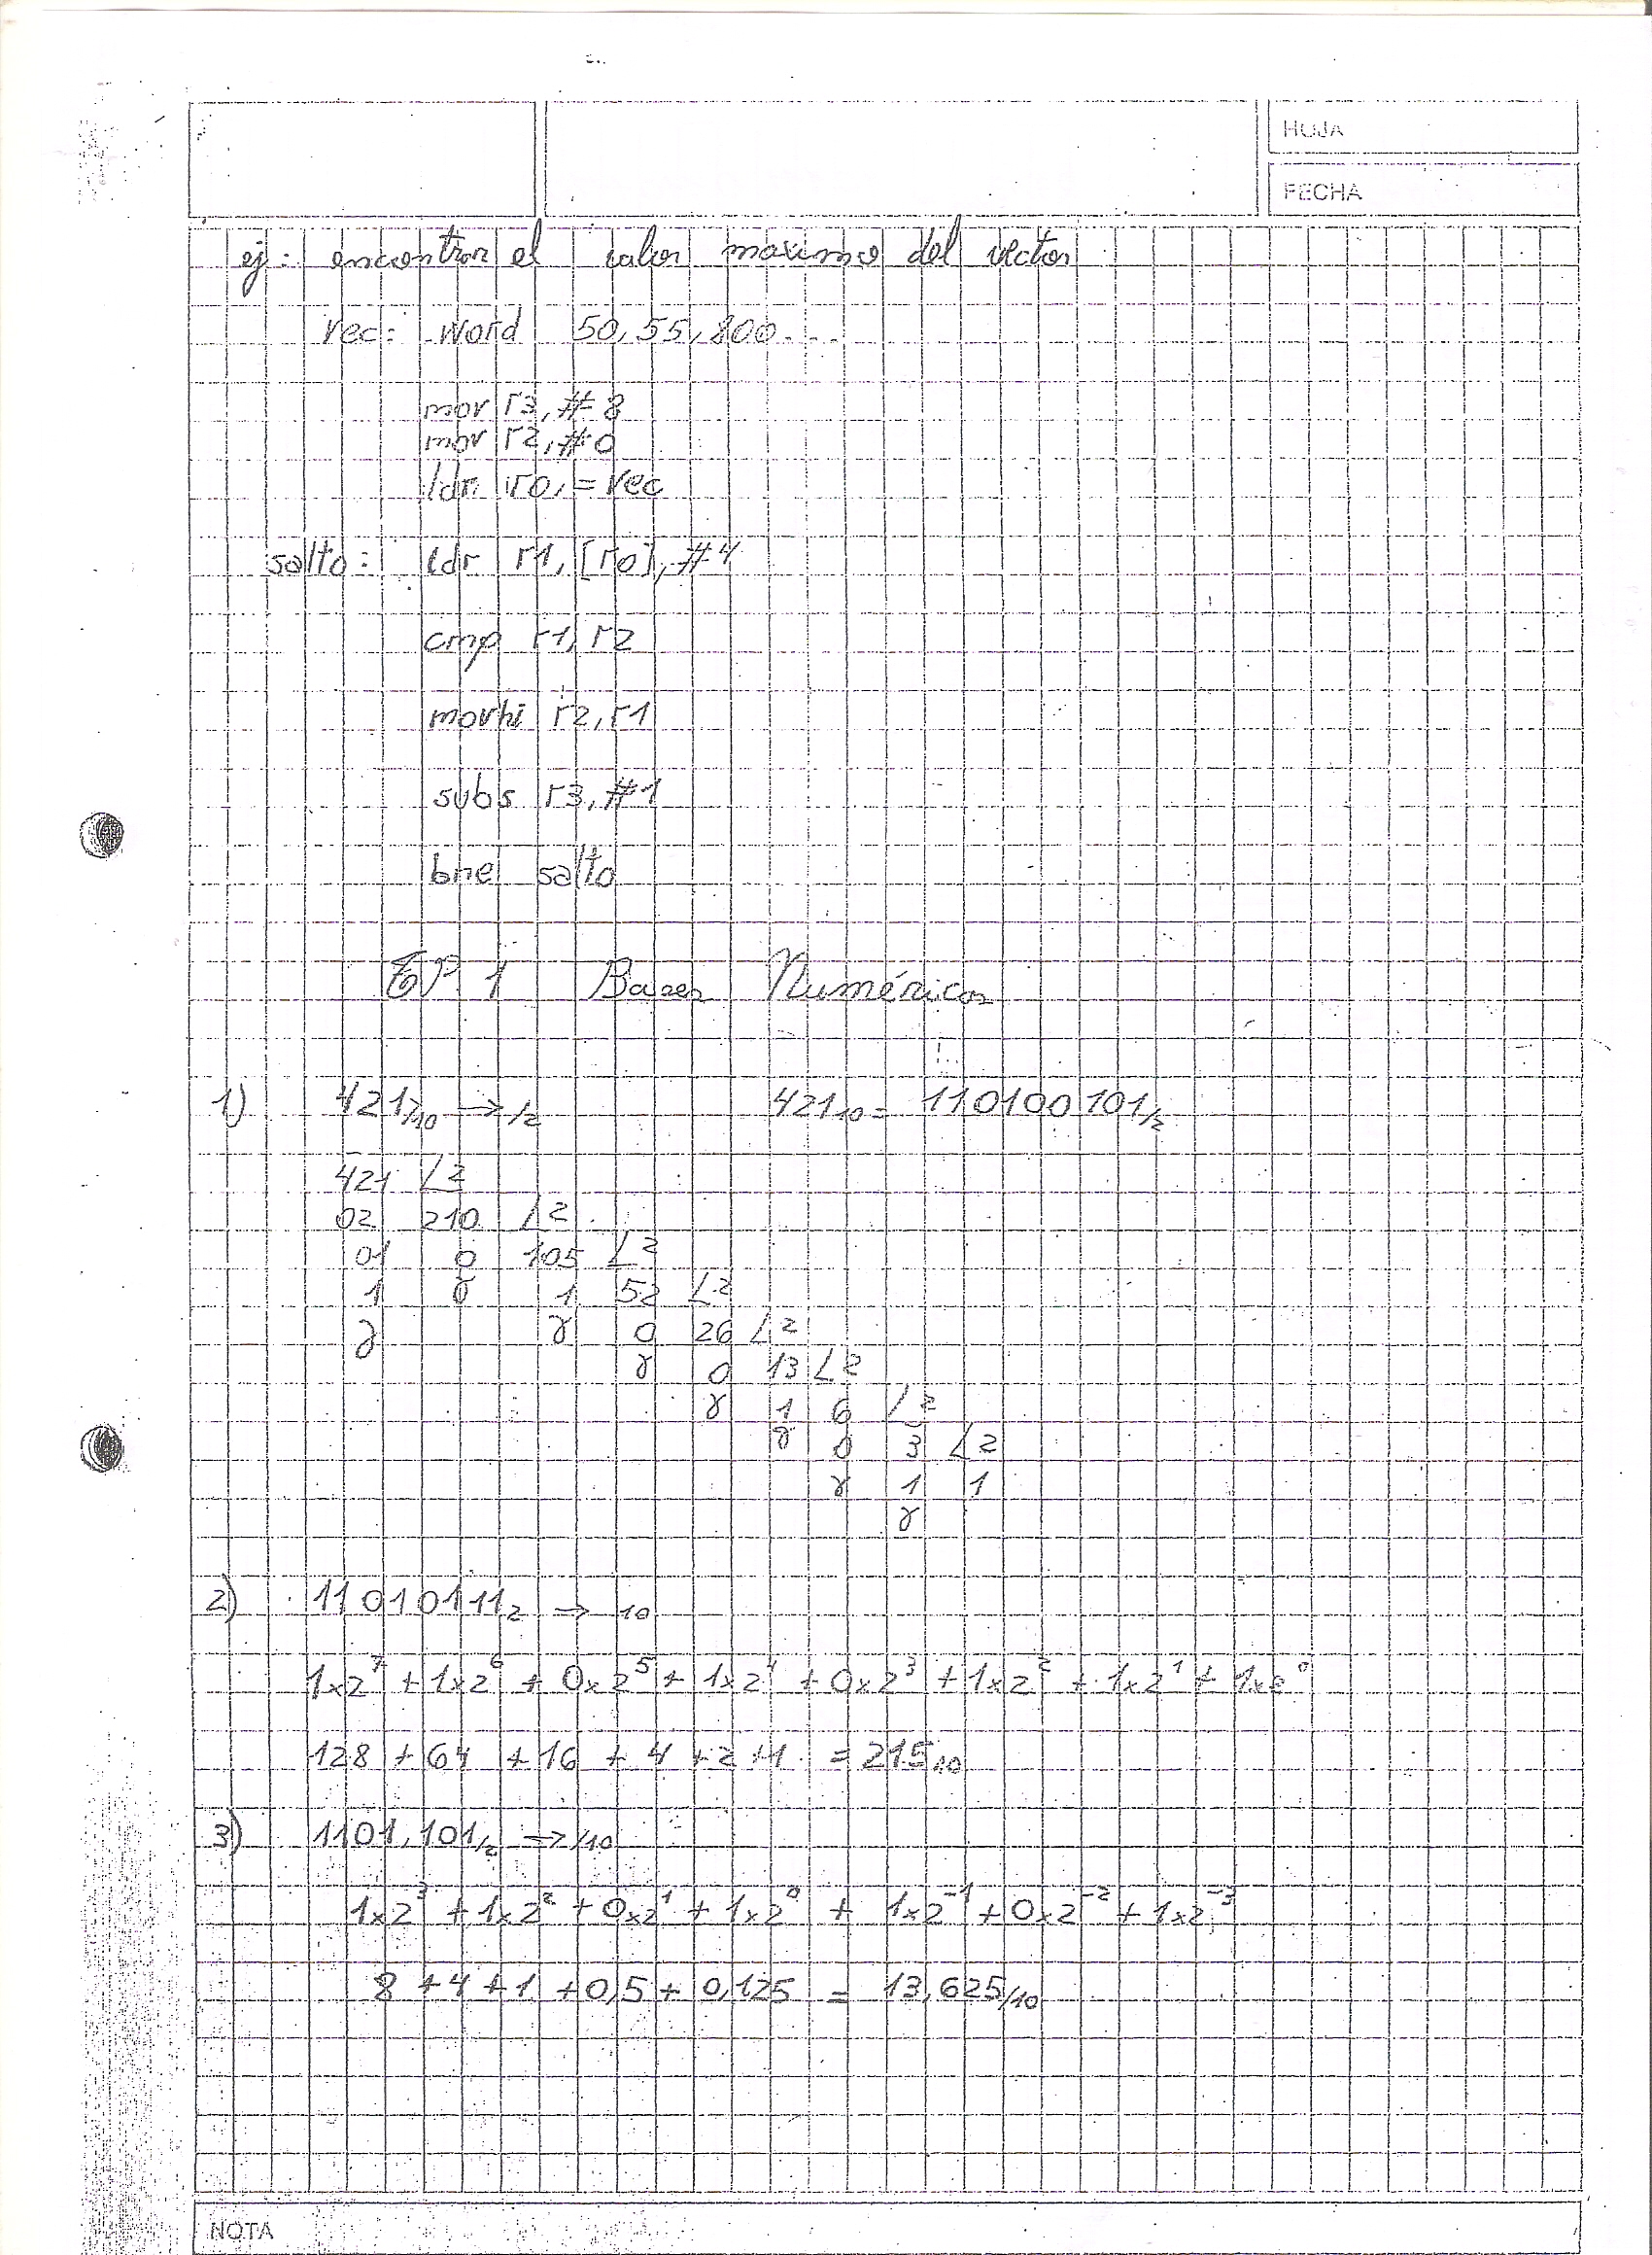 HOJA
FECHA
ej: encontrar el valor maximo del vector
vec: word 50, 55, 800....
mov r3, #8
mov r2, #0
ldr r0, =vec
salto: ldr r1, [r0], #4
cmp r1, r2
movhi r2, r1
subs r3, #1
bne salto
TP 1 Bases Numéricas
1) 421/10 → /2 421 10 = 110100101/2
421 ∟2
02 210 ∟2
01 0 105 ∟2
1 1 52 ∟2
0 26 ∟2
0 13 ∟2
1 6 ∟2
0 3 ∟2
1 1
2) 11010111₂ → 10
1x2⁷ + 1x2⁶ + 0x2⁵ + 1x2⁴ + 0x2³ + 1x2² + 1x2¹ + 1x2⁰
128 + 64 + 16 + 4 + 2 + 1 = 215₁₀
3) 1101,101/2 → /10
1x2³ + 1x2² + 0x2¹ + 1x2⁰ + 1x2⁻¹ + 0x2⁻² + 1x2⁻³
8 + 4 + 1 + 0,5 + 0,125 = 13,625/10
NOTA